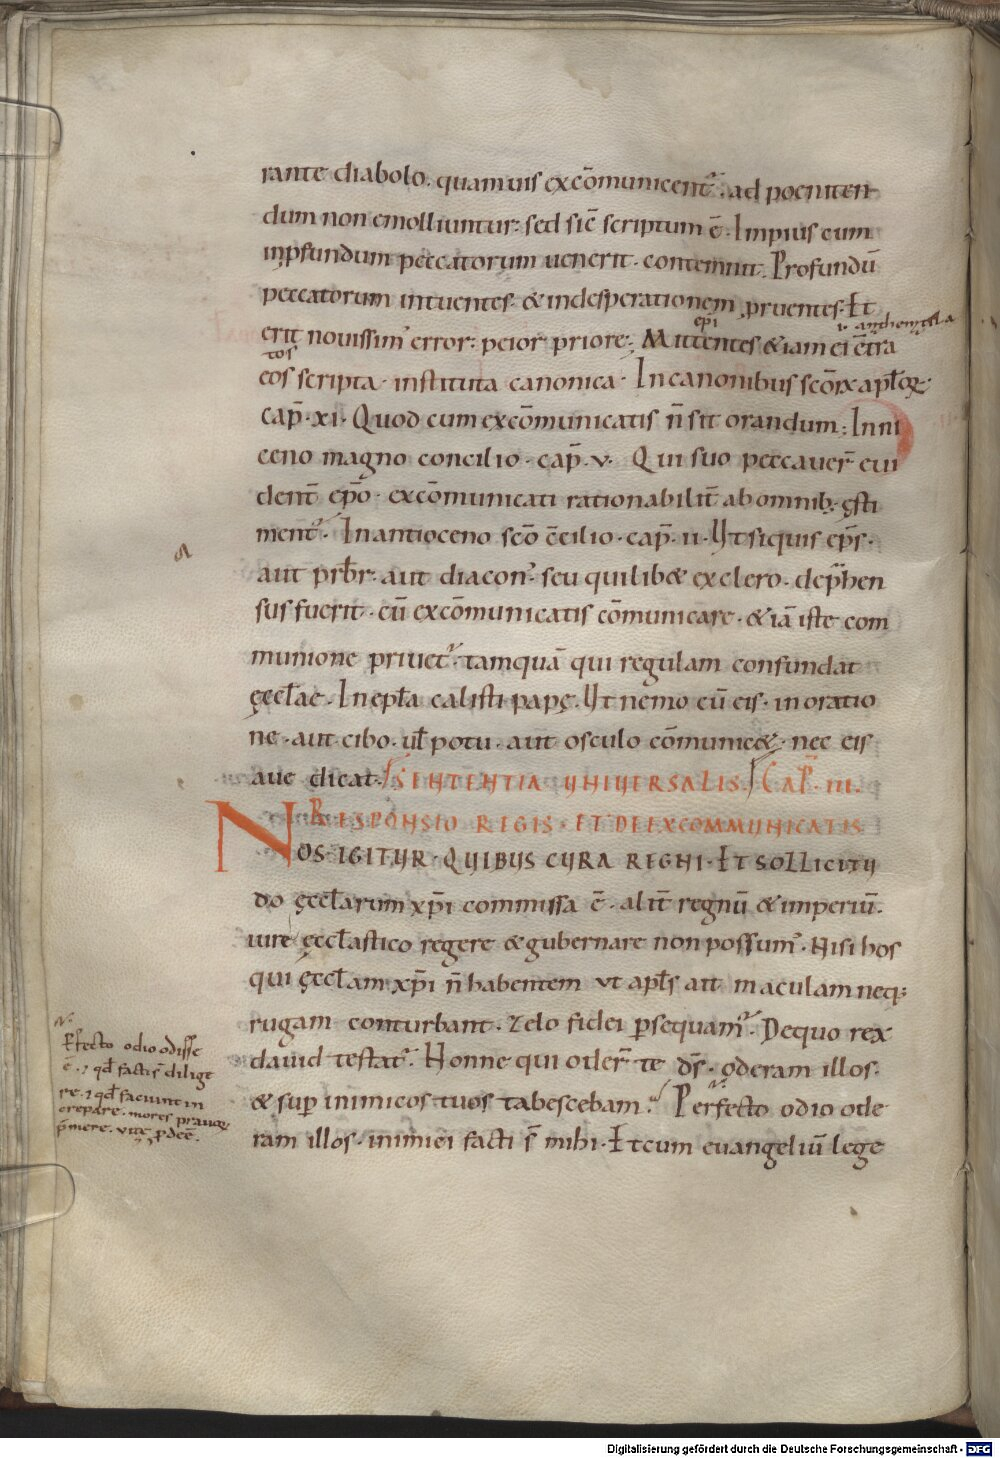 rante diabolo. quamuis excōmunicent᷑. ad poeniten
dum non emolliuntur: sed sic̄ scriptum ē. Impius cum
inp̱fundum peccatorum uenerit. contemnit. Profundū
peccatorum intuentes. & indesperationem p̱ruentes. Et
erit novissim᷒ error: peior priore: Mittentes & iam ei ēt̄ra
epi
i. anathematiza
tos
eos scripta. instituta canonica. In canonibus scōrꝝ apl̄oꝝ.
cap̄. xi. Quod cum excōmunicatis n̄ sit orandum: In ni
ceno magno concilio. cap̄. v. Qui suo peccauer̄ eui
dent̄ ep̄o. excōmunicati rationabilit̄ ab omnib; ęsti
ment᷑. In antioceno scō c̄cilio. cap̄. ii. Ut siquis ep̄s.
aut prb̄r. aut diacon᷒. seu quilib& ex clero. dep̱hen
sus fuerit. cū excōmunicatis cōmunicare. & iā iste com
munione priuet᷑. tamquā qui regulam confundat
ęccl̄ae. In epl̄a calisti papę. Ut nemo cū eis. in oratio
ne. aut cibo. ul̄ potu. aut osculo cōmunic&. nec eis
aue dicat. SENTENTIA UNIUERSALIS. CAP̄. III.
RESPONSIO REGIS. ET DE EXCOMMUNICATIS
NOS. IGITUR. QUIBUS CURA REGNI. ET SOLLICITU
do ęccl̄arum xp̄i commissa ē. alit̄ regnū & imperiū.
iure ęccl̄astico regere & gubernare non possum᷒. Nisi hos
qui ęccl̄am xp̄i n̄ habentem ut apl̄s ait maculam neq;
rugam conturbant. zelo fidei p̱sequam᷑. De quo rex
dauid testat᷑. Nonne qui oder̄ te dn̄s. oderam illos.
& sup̱ inimicos tuos tabescebam. Perfecto odio ode
ram illos. inimici facti s̄ mihi. Et cum euangeliū lege
Ꝑfecto odio odisse
ē. ⁊ qd̄ facti s̄ dilige
re. ⁊ qd̄ faciunt in
crepare. mores prauoꝝ
p̄mere. vitę p̱deē.
Digitalisierung gefördert durch die Deutsche Forschungsgemeinschaft - DFG